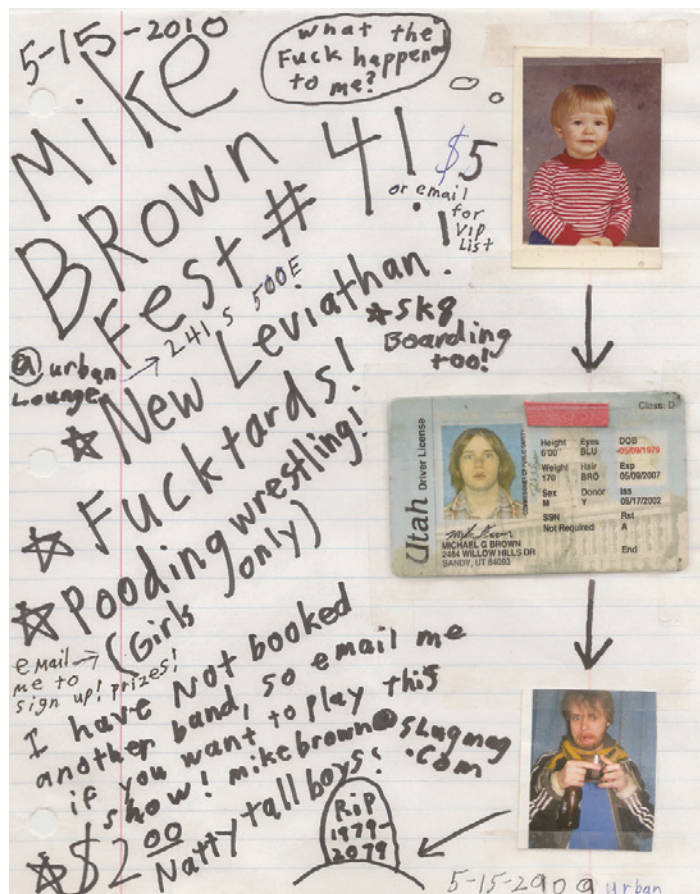 5-15-2010
what the
Fuck happened
to me?
Mike
BRown
Fest # 41!
$5
or email
for
VIP
List
@ urban
Lounge → 241 S 500E
☆ New Leviathan!
*sk8
Boarding
too!
☆ Fucktards!
☆ Pooding wrestling!
(Girls only)
email →
me to
sign up! prizes!
I have Not booked
another band, so email me
if you want to play this
show! mikebrown@slugmag
.com
☆ $2 00
Natty tall boys!
Rip
1979-
2079
5-15-2909 urban
Class: D
Utah Driver License
Height Eyes DOB
6'00" BLU 05/09/1979
Weight Hair Exp
170 BRO 05/09/2007
Sex Donor Iss
M Y 05/17/2002
SSN Rst
Not Required A
End
MICHAEL G BROWN
2484 WILLOW HILLS DR
SANDY, UT 84093